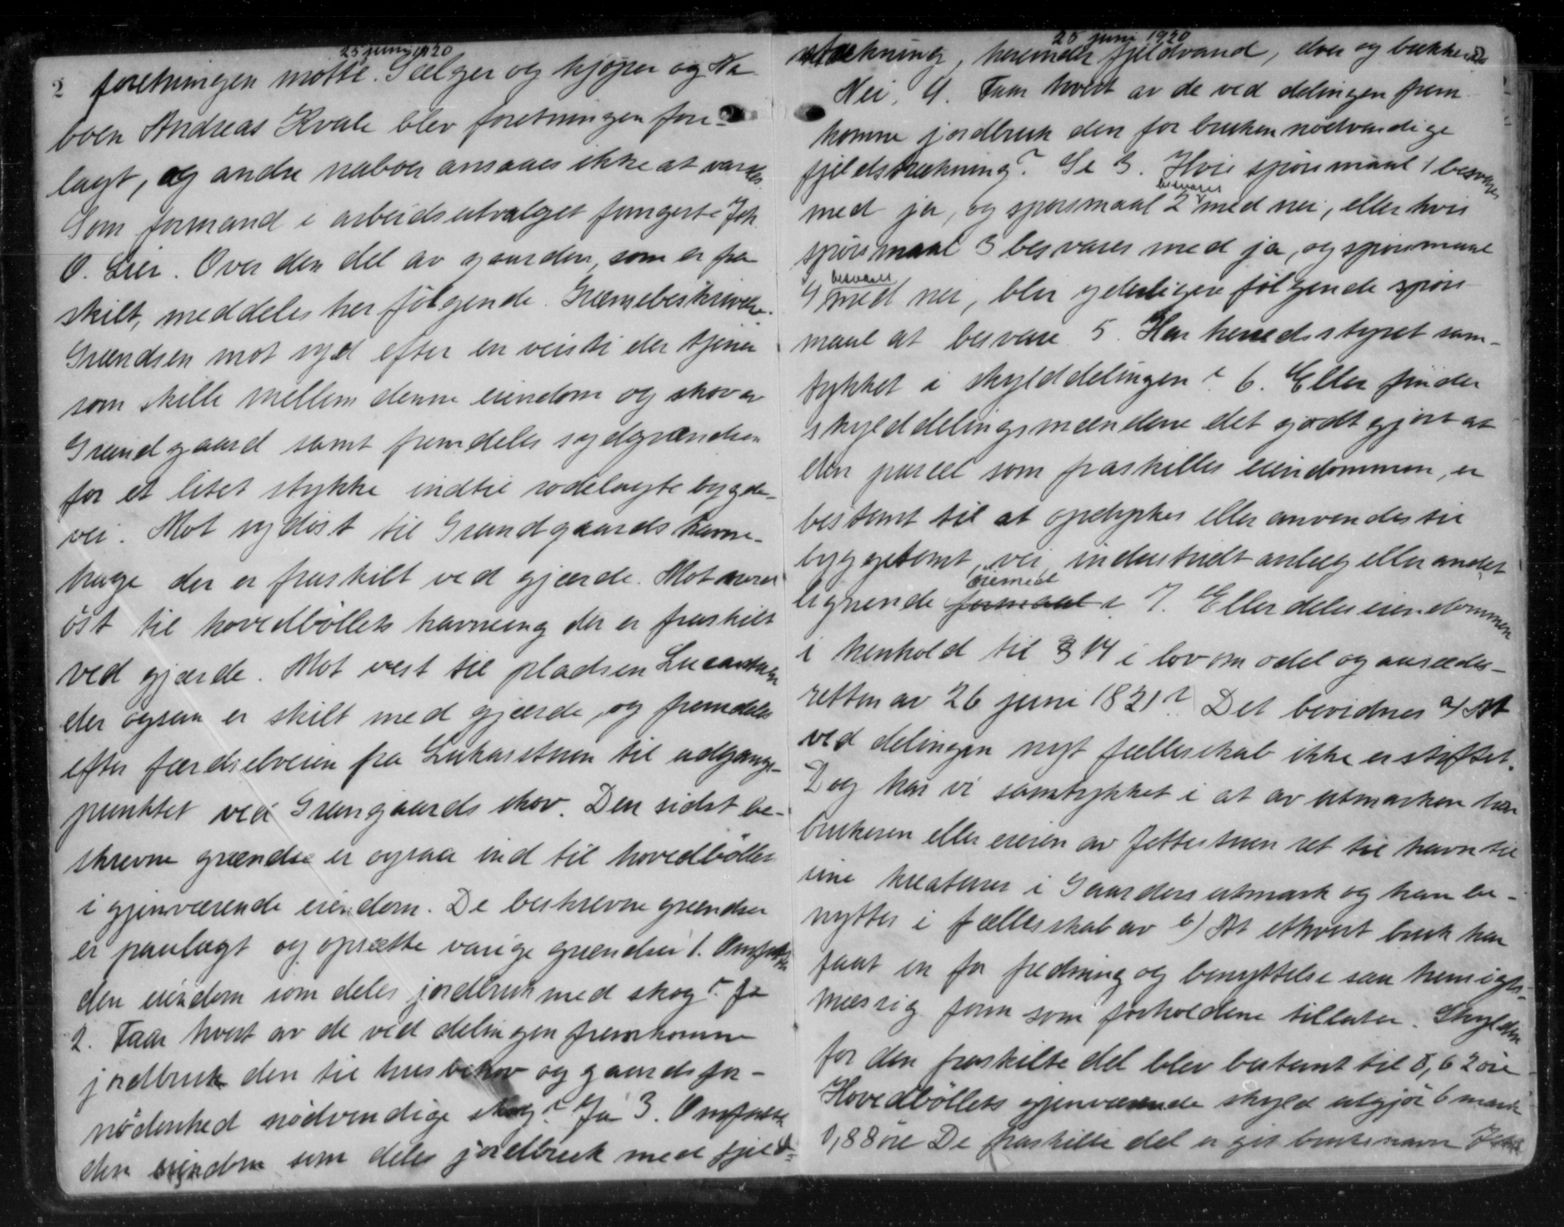 25 juni 1920
2 forretningen møtte. Sælger og kjøper og Na
boen Andreas Kvale blev forretningen fore-
lagt, og andre naboer ansaaes ikke at varsles.
Som formand i arbeidsutvalget fungerte Joh.
O. Lier. Over den del av gaarden, som er fra
skilt, meddeles her følgende Grænsebeskrivelse.
Grændsen mot syd efter en veisti der tjener
som skille mellem denne eiendom og skov av
Grundgaard samt fremdeles sydgrændsen
for et litet stykke indtil rodelagte bygde-
vei. Mot sydøst til Grundgaards havne-
hage der er fraskilt ved gjærde. Mot nord
øst til hovedbøllets havning der er fraskilt
ved gjærde. Mot vest til pladsen
der ogsaa er skilt med gjærde, og fremdeles
efter færdselveien fra Lukasstuen til udgangs-
punktet ved Grungaards skov. Den sidst be-
skrevne grændse er ogsaa ind til hovedbøllet
i gjenværende eiendom. De beskrevne grændser
er paalagt og opsætte varige grændser 1. Omfatter
den eiendom som deles jordbruk med skog? Ja
2. Faar hvert av de ved delingen fremkomne
jordbruk den til husbehov og gaardsfor-
nødenhed nødvendige skog? Ja 3. Omfatter
den eiendom som deles jordbruk med fjeld-
25 juni 1920
strækning, herunder fjeldvand, elver og bækker?
Nei. 4. Faar hvert av de ved delingen frem
komne jordbruk den for bruken nødvendige
fjeldstrækning? Se 3. Hvis spørsmaal 1 besvares
med ja, og spørsmaal 2 besvares med nei, eller hvis
spørsmaal 3 besvares med ja, og spørsmaal
4 besvares med nei, blir yderligere følgende spørs
maal at besvare 5. Har herredsstyret sam-
tykket i skylddelingen? 6. Eller finder
skylddelingsmændene det godtgjort at
den parcel som fraskilles eiendommen, er
bestemt til at opdyrkes eller anvendes til
byggetomt, vei, industrielt anlæg eller andet
lignende formaal øiemed? 7. Eller deles eiendommen
i henhold til § 14 i lov om odel og aasædes-
retten av 26 juni 1821? Det bevidnes a) At
ved delingen nyt fællesskab ikke er stiftet.
Dog har vi samtykket i at av utmarken har
brukeren eller eieren av Jettestuen ret til havn til
sine kreaturer i Gaardens utmark og kan be-
nyttes i fællesskab av b) At ethvert bruk har
faat en for fredning og benyttelse saa hensigts-
mæssig form som forholdene tillater. Skylden
for den fraskilte del blev bestemt til 0,62 øre
Hovedbøllets gjenværende skyld utgjør 6 mark
0,88 øre De fraskilte del er git bruksnavn